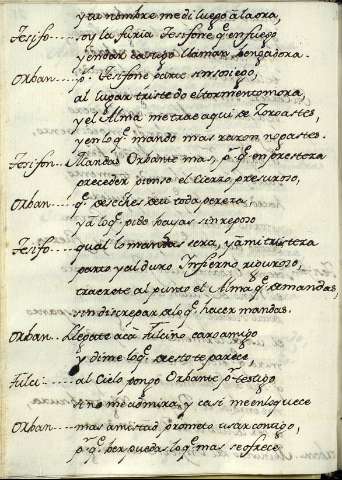 y tu nombre me di luego a la ora,
Tesifo..... soy la furia Tesifone q̃ en fuego
y en dar castigo llaman bengadora.
Orban..... p.ª Tesifone parte sin sosiego,
al lugar triste do el tormento mora
y el Alma me trae aqui de Zoroastes,
y en lo q̃ mando mas razon no gastes.
Tesifon... Mandas Orbante mas, p.r q̃ en presteza
preceder pienso el Cierzo presuroso,
Orban..... q̃ desciendas toda pereza
y a lo q̃ pido bayas sin reposo
Tesifo.... qual lo mandas sera, y a mi tristeza
parto y al duro Infierno riguroso,
traerete al punto el Alma q̃ demandas,
sin discrepar de lo q̃ hacer mandas.
Orban... Llegate acá fulcino caro amigo
y dime lo q̃ desto te parece,
Fulci..... al Cielo pongo Orbante p.r testigo
si no me admira, y casi me enloquece
Orban..... mas amistad prometo usar contigo,
p.r q̃ ber puedas lo q̃ mas se ofrece